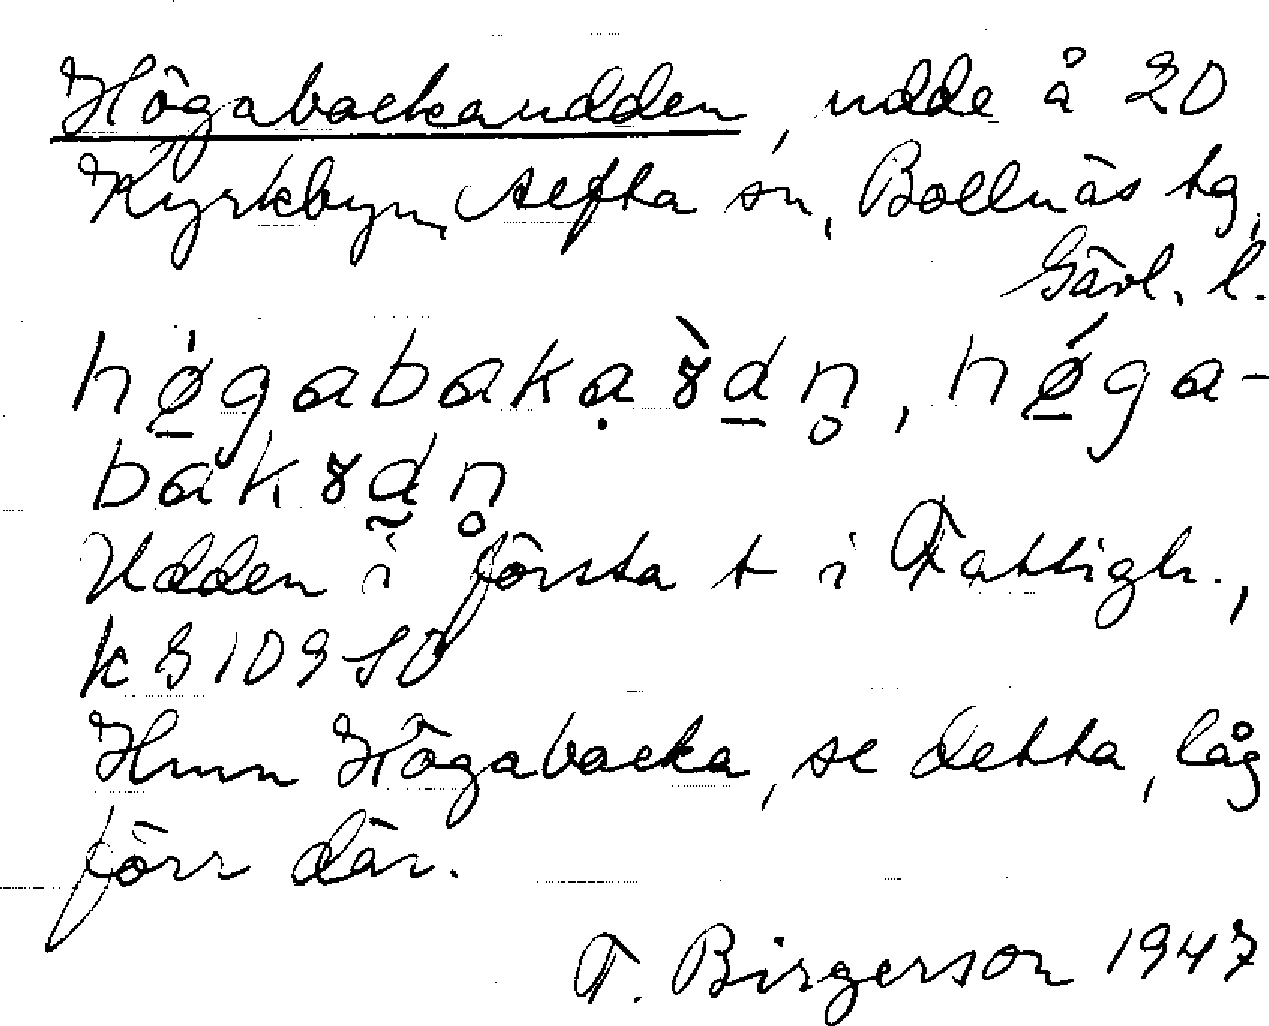 Högabackaudden, udde å 20
Kyrkbyn, Alfta sn, Bollnäs tg,
Gävl. l.
hø̠̀gabakạ ɤ̀d̠n̥, hǿ̠ga-
bakɤd̰n̥
Udden i första t i Fattigh.,
k 9109 SO
Hmn Högabacka, se detta, låg
förr där.
T. Birgerson 1947